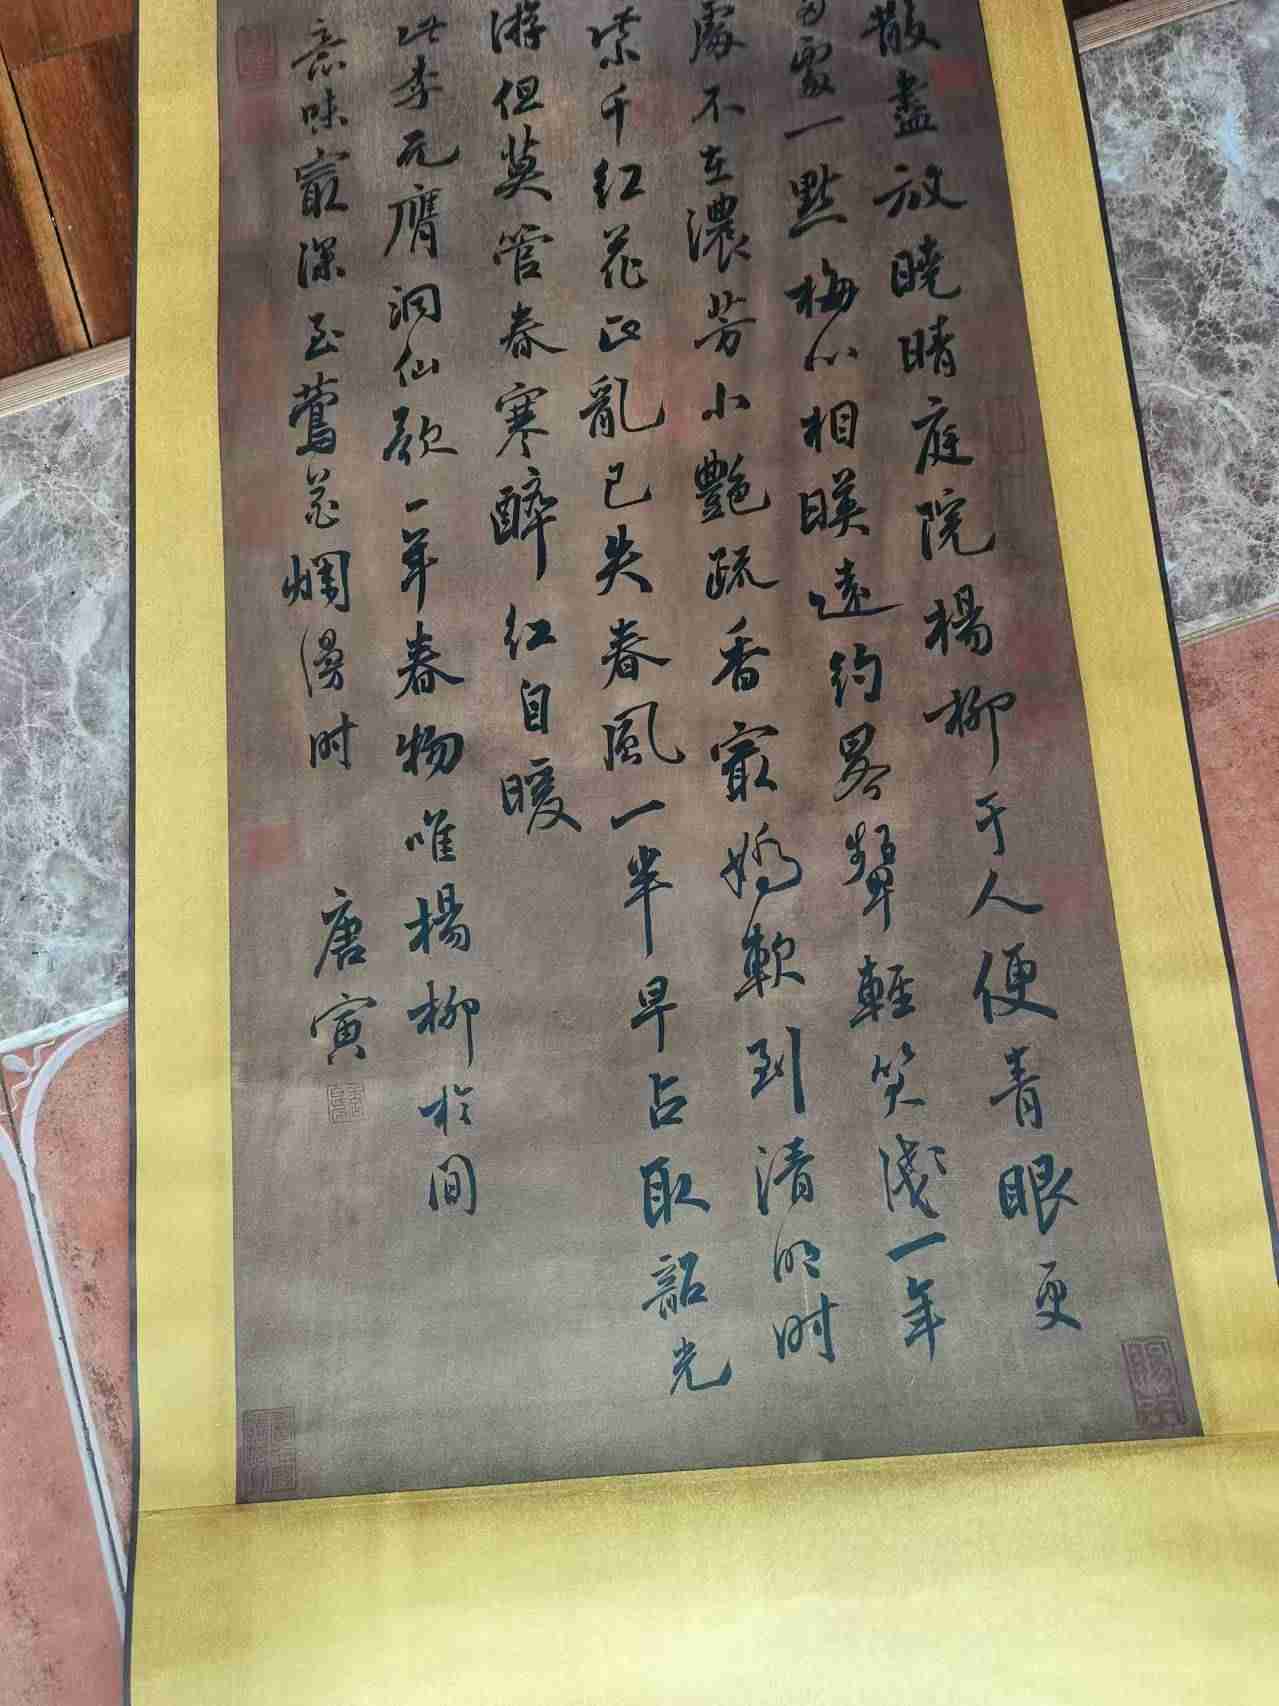 散盡放曉晴庭院楊柳于人便青眼更
一點梅心相暎遠約畧顰輕笑淺一年
處不在濃芳小艷疏香最嬌軟到清明時
紫千紅花正亂已失春風一半早占取韶光
游但莫管春寒醉紅自暖
此李元膺洞仙歌一年春物唯楊柳於間
意味最深至鶯花爛漫時
唐寅